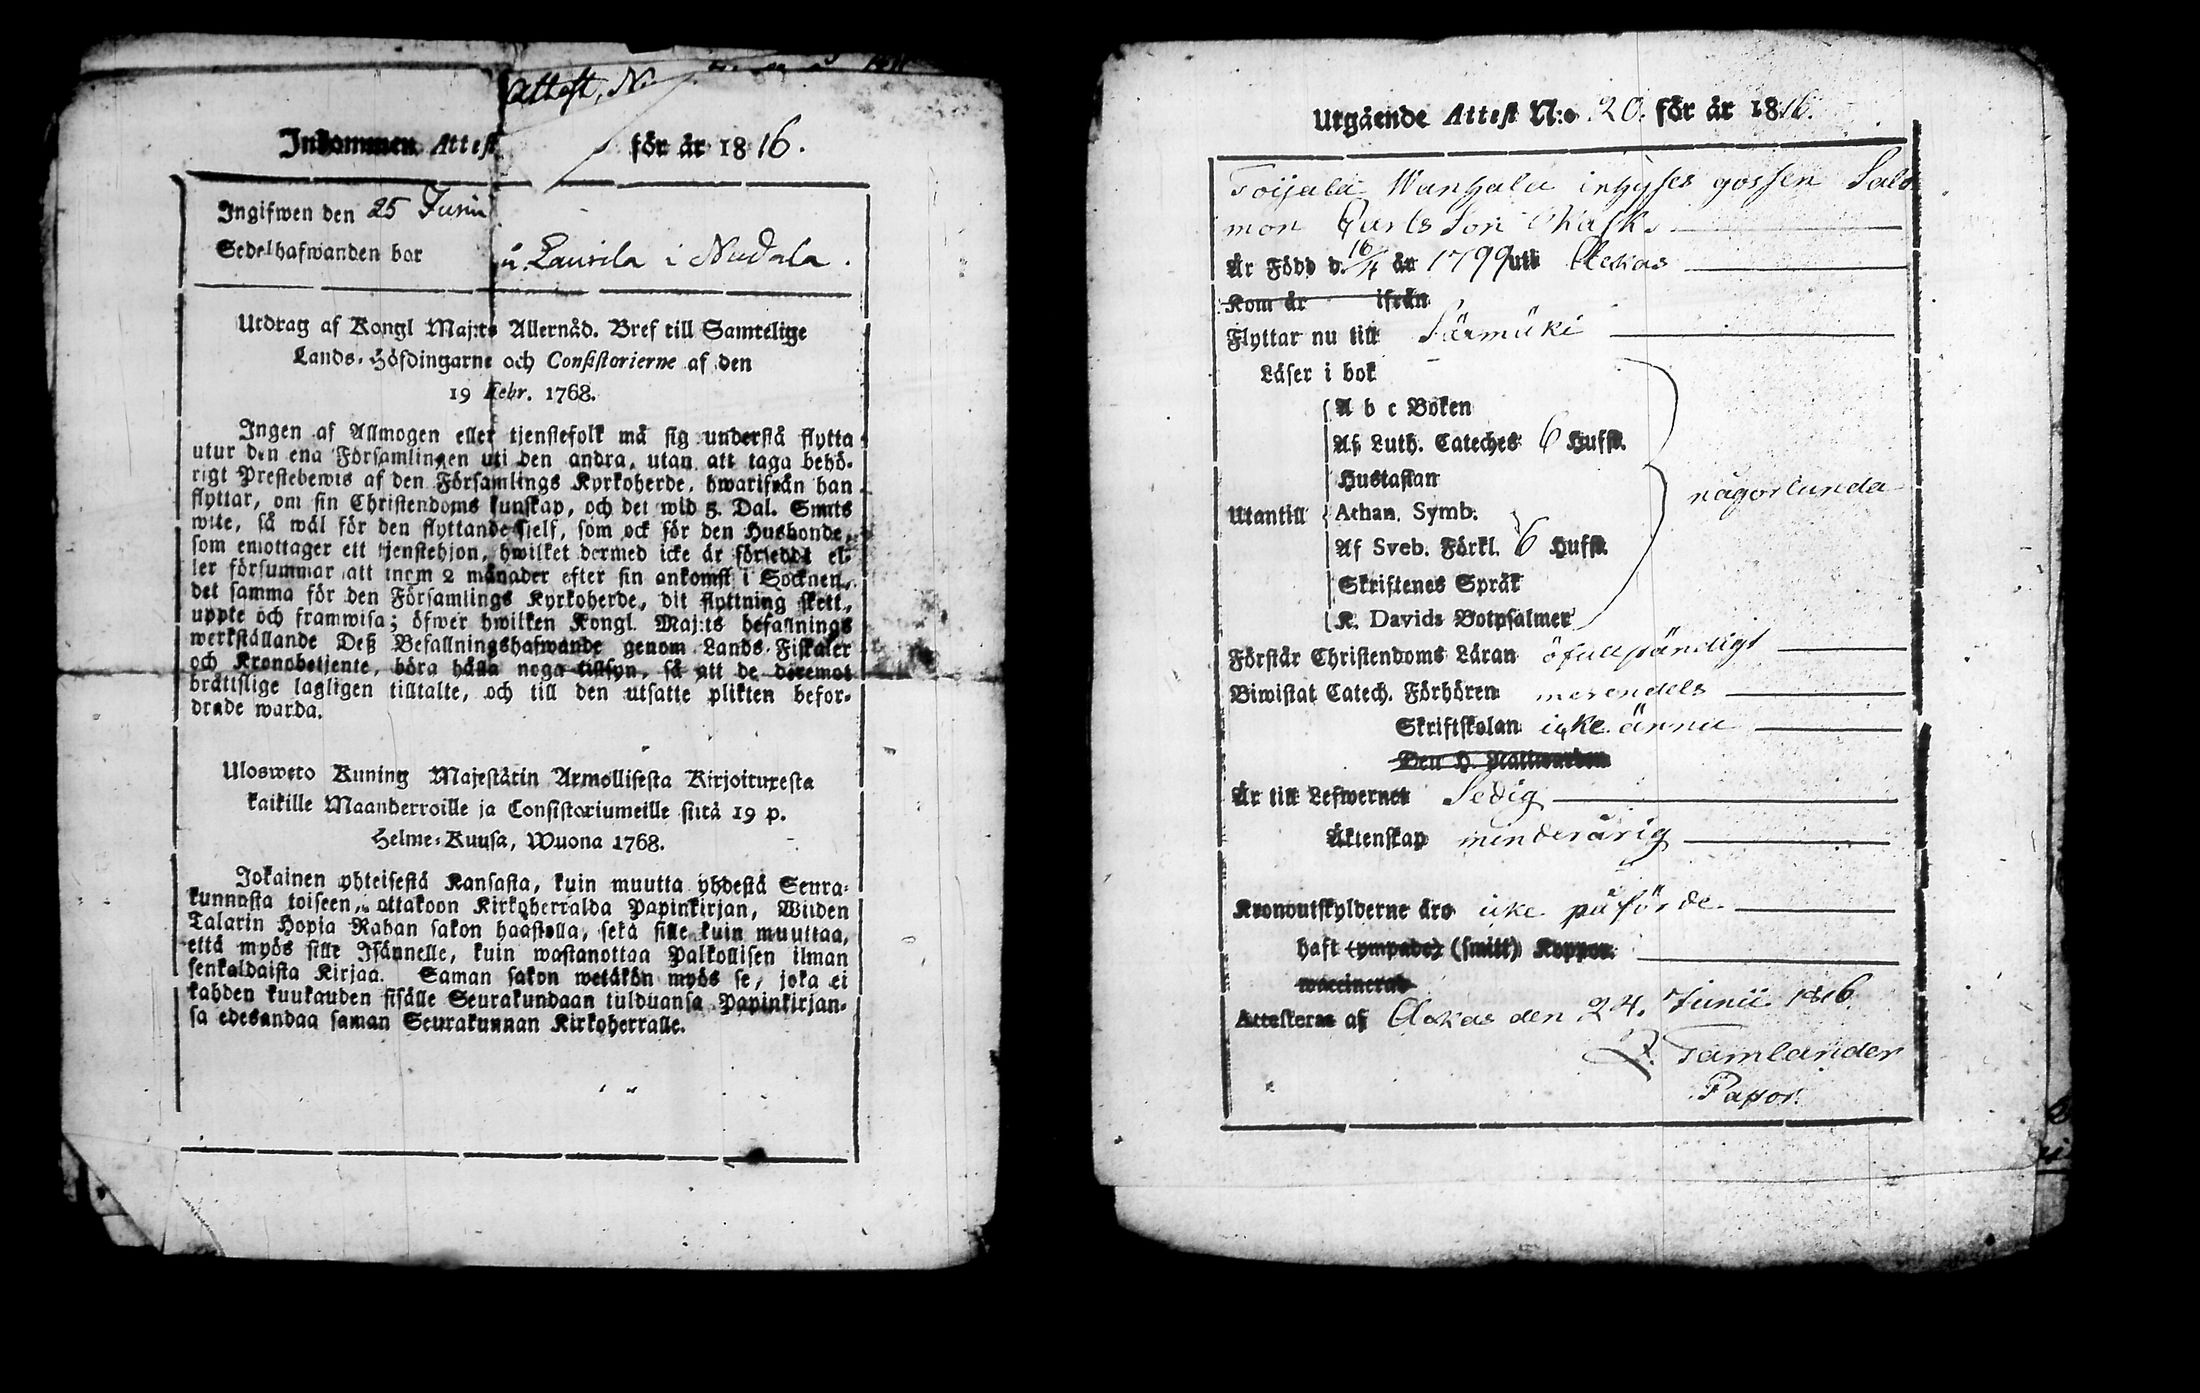 Attest, N:
Inkommen Attest för år 1816.
Ingifwen den 25 Junii
Sedelhafwanden bor u. Laurila i Nudala.
Utdrag af Kongl Maj:ts Allernåd. Bref till Samtelige
Lands-Höfdingarne och Consistorierne af den
19 Febr. 1768.
Ingen af Allmogen eller tjenstefolk må sig understå flytta
utur den ena Församlingen uti den andra, utan att taga behö-
rigt Prestebewis af den Församlings Kyrkoherde, hwarifrån han
flyttar, om sin Christendoms kunskap, och det wid 5. Dal. Smts
wite, så wäl för den flyttande sjelf, som ock för den Husbonde,
som emottager ett tjenstehjon, hwilket dermed icke är försedt el-
ler försummar att inom 2 månader efter sin ankomst i Socknen,
det samma för den Församlings Kyrkoherde, dit flyttning skett,
uppte och framwisa; öfwer hwilken Kongl. Maj:ts befallnings
werkställande Deß Befallningshafwande genom Lands-Fiskaler
och Kronobetjente, böra hålla noga tillsyn, så att de deremot
bråttslige lagligen tilltalte, och till den utsatte plikten befor-
drade warda.
Ulosweto Kuning Majestätin Armollisesta Kirjoituxesta
kaikille Maanherroille ja Consistoriumeille siitä 19 p.
Helme-Kuusa, Wuona 1768.
Jokainen yhteisestä Kansasta, kuin muutta yhdestä Seura-
kunnasta toiseen, ottakoon Kirkoherralda Papinkirjan, Wiiden
Talarin Hopia Rahan sakon haastolla, sekä sille kuin muuttaa,
että myös sille Isännelle, kuin wastanottaa Palkollisen ilman
senkaldaista Kirjaa. Saman sakon wetäkön myös se, joka ei
kahden kuukauden sisälle Seurakundaan tulduansa Papinkirjan-
sa edesandaa saman Seurakunnan Kirkoherralle.
Utgående Attest N:o 20. för år 1816.
Toijala Wanhala inhyses gossen Salo
mon Carls Son
Är Född d. 16/4 år 1799 uti Ackas
Kom år ifrån
Flyttar nu till Särmäki
Läser i bok
A b c Boken
Af Luth. Cateches 6 Hufst.
Hustaflan
någorlunda
Utantill Athan. Symb.
Af Sveb. Förkl. 6 Hufst.
Skriftenes Språk
K. Davids Botpsalmer
Förstår Christendoms Läran ofullständigt
Biwistat Catech. Förhören merendels
Skriftskolan icke ännu
Den H. Nattwarden
Är till Lefwernet Sedig
Äktenskap minderårig
Kronoutskylderne äro icke påförde.
haft (ympade) (smitt) Koppor.
waccinerad
Attesteras af Ackas den 24. Junii 1816
Tamlander
Pastor.